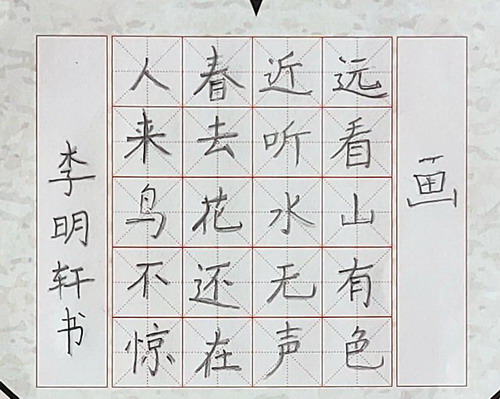 画
远看山有色
近听水无声
春去花还在
人来鸟不惊
李明轩书